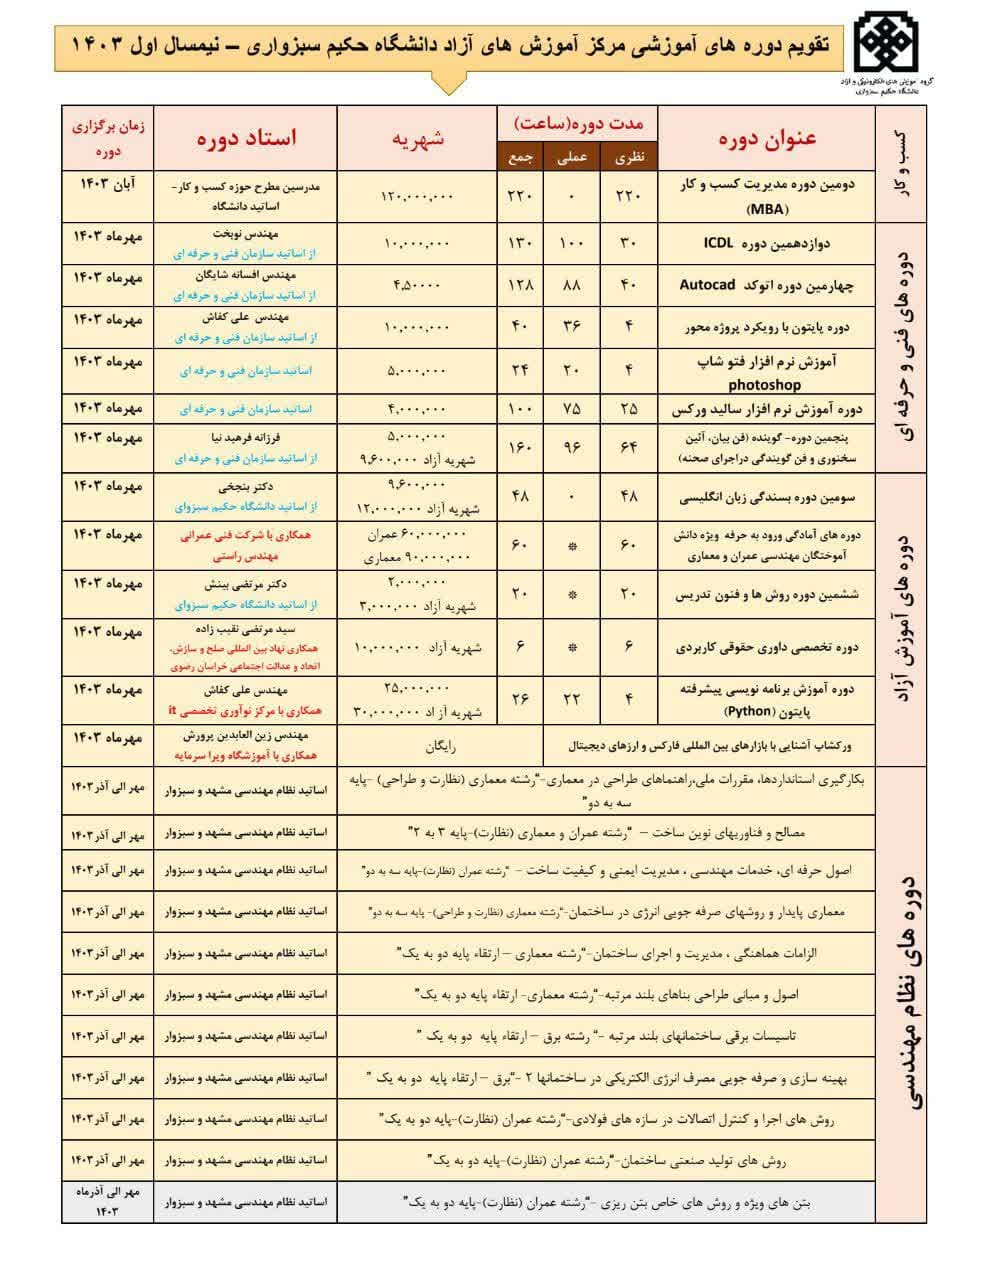 تقویم دوره های آموزشی مرکز آموزش های آزاد دانشگاه حکیم سبزواری – نیمسال اول ۱۴۰۳
گروه آموزش های الکترونیکی و آزاد
دانشگاه حکیم سبزواری
کسب و کار
عنوان دوره
مدت دوره(ساعت)
نظری
عملی
جمع
شهریه
استاد دوره
زمان برگزاری
دوره
دومین دوره مدیریت کسب و کار
(MBA)
۲۲۰
۰
۲۲۰
۱۲۰,۰۰۰,۰۰۰
مدرسین مطرح حوزه کسب و کار-
اساتید دانشگاه
آبان ۱۴۰۳
دوره های فنی و حرفه ای
دوازدهمین دوره ICDL
۳۰
۱۰۰
۱۳۰
۱۰,۰۰۰,۰۰۰
مهندس نوبخت
از اساتید سازمان فنی و حرفه ای
مهرماه ۱۴۰۳
چهارمین دوره اتوکد Autocad
۴۰
۸۸
۱۲۸
۴,۵۰۰۰۰
مهندس افسانه شایگان
از اساتید سازمان فنی و حرفه ای
مهرماه ۱۴۰۳
دوره پایتون با رویکرد پروژه محور
۴
۳۶
۴۰
۱۰,۰۰۰,۰۰۰
مهندس علی کفاش
از اساتید سازمان فنی و حرفه ای
مهرماه ۱۴۰۳
آموزش نرم افزار فتو شاپ
photoshop
۴
۲۰
۲۴
۵,۰۰۰,۰۰۰
اساتید سازمان فنی و حرفه ای
مهرماه ۱۴۰۳
دوره آموزش نرم افزار سالید ورکس
۲۵
۷۵
۱۰۰
۴,۰۰۰,۰۰۰
اساتید سازمان فنی و حرفه ای
مهرماه ۱۴۰۳
پنجمین دوره- گوینده (فن بیان، آئین
سخنوری و فن گویندگی دراجرای صحنه)
۶۴
۹۶
۱۶۰
۵,۰۰۰,۰۰۰
شهریه آزاد ۹,۶۰۰,۰۰۰
فرزانه فرهید نیا
از اساتید سازمان فنی و حرفه ای
مهرماه ۱۴۰۳
دوره های آموزش آزاد
سومین دوره بسندگی زبان انگلیسی
۴۸
۰
۴۸
۹,۶۰۰,۰۰۰
شهریه آزاد ۱۲,۰۰۰,۰۰۰
دکتر بنجخی
از اساتید دانشگاه حکیم سبزوای
مهرماه ۱۴۰۳
دوره های آمادگی ورود به حرفه ویژه دانش
آموختگان مهندسی عمران و معماری
۶۰
*
۶۰
۶۰,۰۰۰,۰۰۰ عمران
۹۰,۰۰۰,۰۰۰ معماری
همکاری با شرکت فنی عمرانی
مهندس راستی
مهرماه ۱۴۰۳
ششمین دوره روش ها و فنون تدریس
۲۰
*
۲۰
۲,۰۰۰,۰۰۰
شهریه آزاد ۳,۰۰۰,۰۰۰
دکتر مرتضی بینش
از اساتید دانشگاه حکیم سبزوای
مهرماه ۱۴۰۳
دوره تخصصی داوری حقوقی کاربردی
۶
*
۶
شهریه آزاد ۱۰,۰۰۰,۰۰۰
سید مرتضی نقیب زاده
همکاری نهاد بین المللی صلح و سازش،
اتحاد و عدالت اجتماعی خراسان رضوی
مهرماه ۱۴۰۳
دوره آموزش برنامه نویسی پیشرفته
پایتون (Python)
۴
۲۲
۲۶
۲۵,۰۰۰,۰۰۰
شهریه آز اد ۳۰,۰۰۰,۰۰۰
مهندس علی کفاش
همکاری با مرکز نوآوری تخصصی it
مهرماه ۱۴۰۳
ورکشاپ آشنایی با بازارهای بین المللی فارکس و ارزهای دیجیتال
رایگان
مهندس زین العابدین پرورش
همکاری با آموزشگاه ویرا سرمایه
مهرماه ۱۴۰۳
دوره های نظام مهندسی
بکارگیری استانداردها، مقررات ملی،راهنماهای طراحی در معماری-“رشته معماری (نظارت و طراحی) -پایه
سه به دو”
اساتید نظام مهندسی مشهد و سبزوار
مهر الی آذر۱۴۰۳
مصالح و فناوریهای نوین ساخت – “رشته عمران و معماری (نظارت)-پایه ۳ به ۲”
اساتید نظام مهندسی مشهد و سبزوار
مهر الی آذر۱۴۰۳
اصول حرفه ای، خدمات مهندسی ، مدیریت ایمنی و کیفیت ساخت – “رشته عمران (نظارت)-پایه سه به دو”
اساتید نظام مهندسی مشهد و سبزوار
مهر الی آذر۱۴۰۳
معماری پایدار و روشهای صرفه جویی انرژی در ساختمان-“رشته معماری (نظارت و طراحی)- پایه سه به دو”
اساتید نظام مهندسی مشهد و سبزوار
مهر الی آذر۱۴۰۳
الزامات هماهنگی ، مدیریت و اجرای ساختمان-“رشته معماری – ارتقاء پایه دو به یک”
اساتید نظام مهندسی مشهد و سبزوار
مهر الی آذر۱۴۰۳
اصول و مبانی طراحی بناهای بلند مرتبه-“رشته معماری- ارتقاء پایه دو به یک”
اساتید نظام مهندسی مشهد و سبزوار
مهر الی آذر۱۴۰۳
تاسیسات برقی ساختمانهای بلند مرتبه -“ رشته برق – ارتقاء پایه دو به یک ”
اساتید نظام مهندسی مشهد و سبزوار
مهر الی آذر۱۴۰۳
بهینه سازی و صرفه جویی مصرف انرژی الکتریکی در ساختمانها ۲ -“برق – ارتقاء پایه دو به یک ”
اساتید نظام مهندسی مشهد و سبزوار
مهر الی آذر۱۴۰۳
روش های اجرا و کنترل اتصالات در سازه های فولادی-“رشته عمران (نظارت)-پایه دو به یک”
اساتید نظام مهندسی مشهد و سبزوار
مهر الی آذر۱۴۰۳
روش های تولید صنعتی ساختمان-“رشته عمران (نظارت)-پایه دو به یک”
اساتید نظام مهندسی مشهد و سبزوار
مهر الی آذر۱۴۰۳
بتن های ویژه و روش های خاص بتن ریزی -“رشته عمران (نظارت)-پایه دو به یک”
اساتید نظام مهندسی مشهد و سبزوار
مهر الی آذرماه
۱۴۰۳